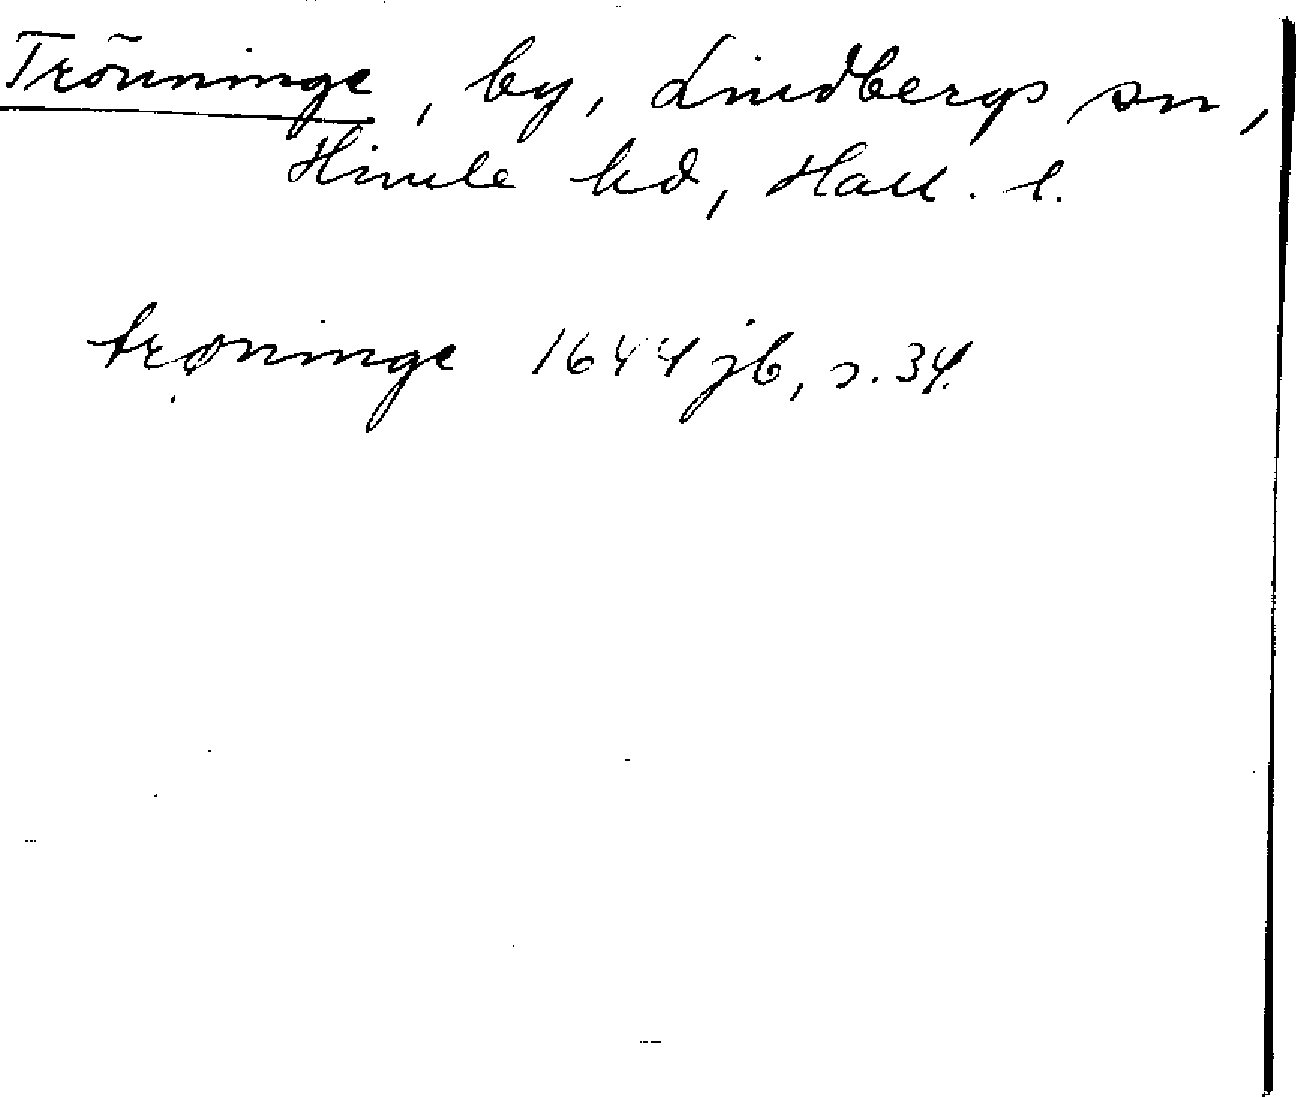 Trönninge, by, Lindbergs sn,
Himle hd, Hall. l.
trøninge 1644 jb, s. 34.